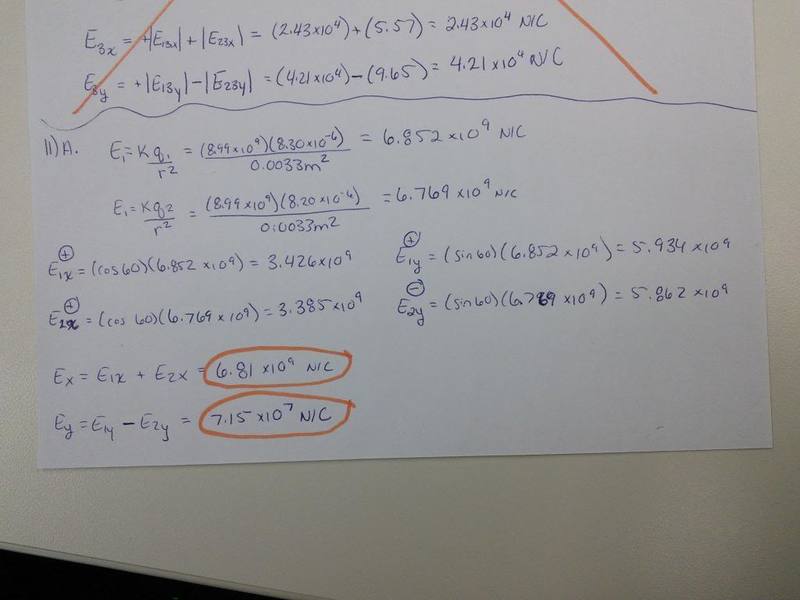 E3x = +|E13x| + |E23x| = (2.43x10⁴)+(5.57) = 2.43x10⁴ N/C
E3y = +|E13y| - |E23y| = (4.21x10⁴)-(9.65) = 4.21x10⁴ N/C
11) A. E₁ = K q₁/r² = (8.99x10⁹)(8.30x10⁻⁶)/0.0033m² = 6.852x10⁹ N/C
E₁ = Kq2/r² = (8.99x10⁹)(8.20x10⁻⁶)/0.0033m² = 6.769x10⁹ N/C
⊕ E1x = (cos60)(6.852x10⁹) = 3.426x10⁹
⊕ E1y = (sin60)(6.852x10⁹) = 5.934x10⁹
⊕ E2x = (cos 60)(6.769x10⁹) = 3.385x10⁹
⊖ E2y = (sin60)(6.769x10⁹) = 5.862x10⁹
Ex = E1x + E2x = 6.81x10⁹ N/C
Ey = E1y - E2y = 7.15x10⁷ N/C